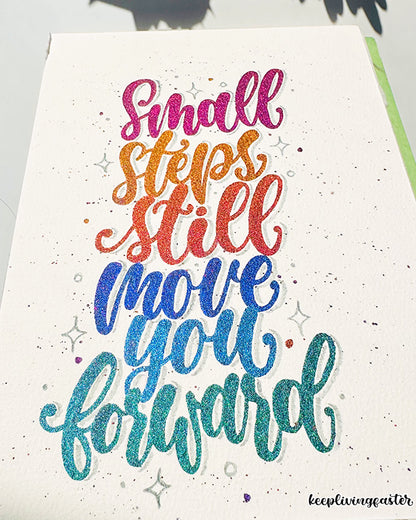 Small
steps
still
move
you
forward
keeplivingfaster